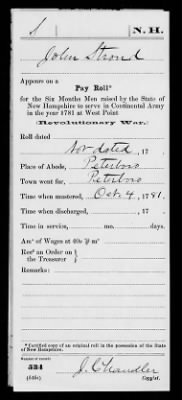 S | N. H.
John Strond
Appears on a
Pay Roll*
for the Six Months Men raised by the State of
New Hampshire to serve in Continental Army
in the year 1781 at West Point
(Revolutionary War.)
Roll dated
Not dated, 17 .
Place of Abode, Peterboro
Town went for, Peterboro
Time when mustered, Oct. 4, 1781.
Time when discharged, , 17 .
Time in service, mo. days.
Amt of Wages at 40s ℔ mo
Recd on Order on
the Treasurer
Remarks:
*Certified copy of an original roll in the possession of the State
of New Hampshire.
Number of record:
534
J. Chandler
(646c) Copyist.